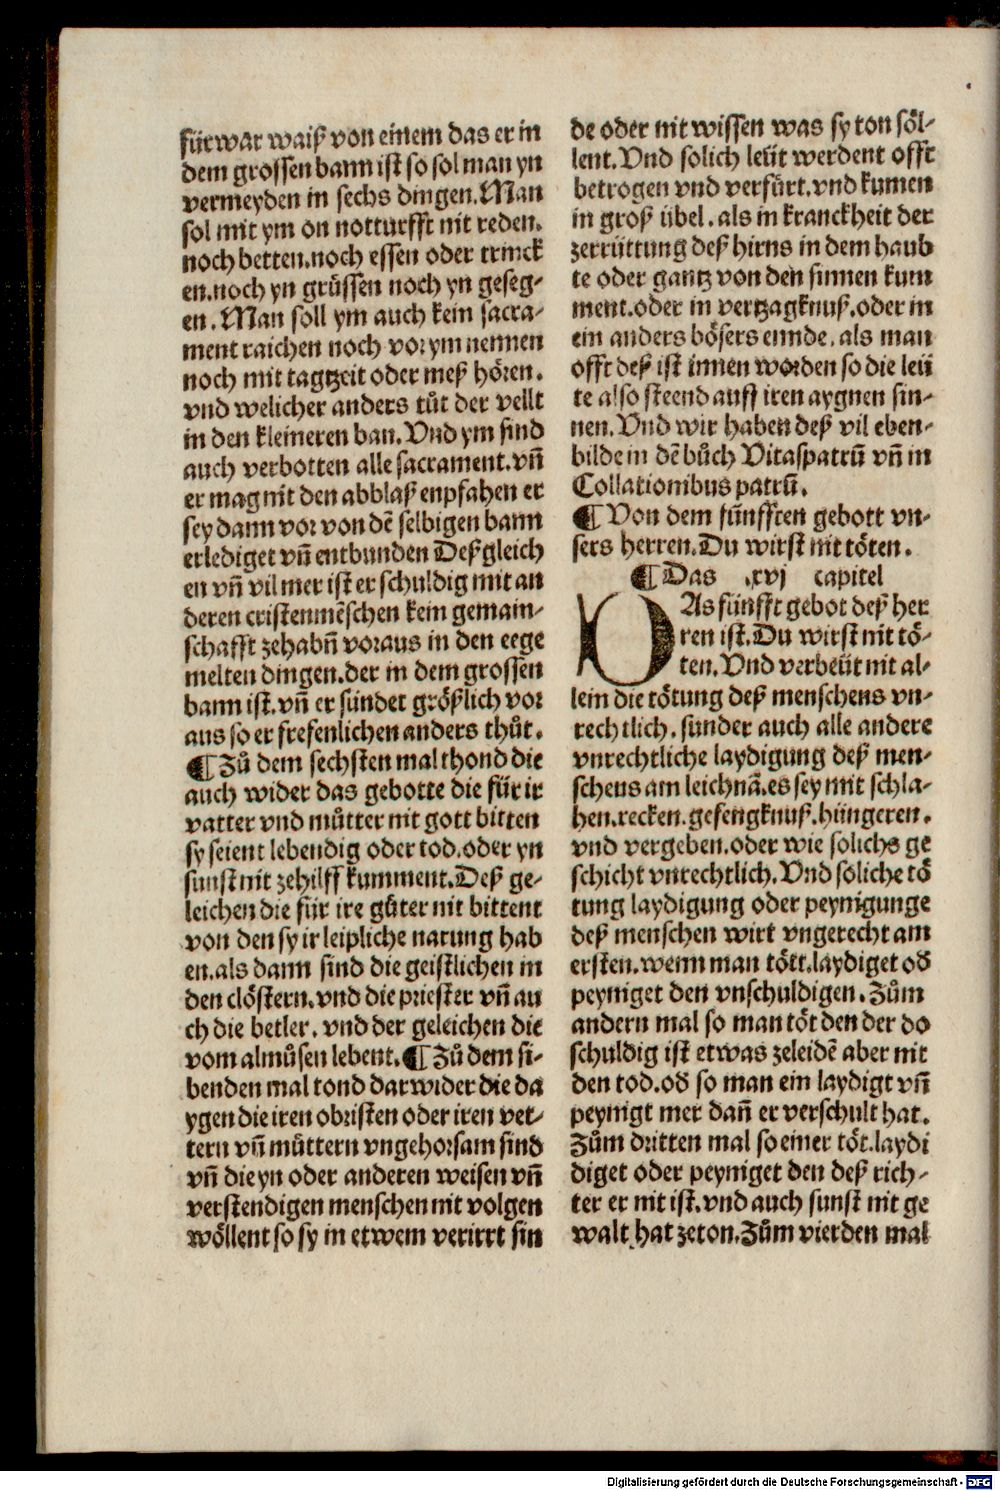 fürwar waiß von einem das er in
dem grossen bann ist so sol man yn
vermeyden in sechs dingen. Man
sol mit ym on notturfft nit reden.
noch betten. noch essen oder trinck
en. noch yn grüssen noch yn geseg-
en. Man soll ym auch kein sacra-
ment raichen noch vor ym nennen
noch mit tagtzeit oder meß hören.
vnd welicher anders tůt der vellt
in den kleineren ban. Vnd ym sind
auch verbotten alle sacrament. vn̄
er mag nit den abblaß enpfahen er
sey dann vor von dē selbigen bann
erlediget vn̄ entbunden Deßgleich
en vn̄ vil mer ist er schuldig mit an
deren cristenmēschen kein gemain-
schafft zehabn̄ voraus in den eege
melten dingen. der in dem grossen
bann ist. vn̄ er sündet größlich vor
aus so er frefenlichen anders thůt.
¶ Zů dem sechsten mal thond die
auch wider das gebotte die für ir
vatter vnd můtter nit gott bitten
sy seient lebendig oder tod. oder yn
sunst nit zehilff kumment. Deß ge-
leichen die für ire gůter nit bittent
von den sy ir leipliche narung hab
en. als dann sind die geistlichen in
den clöstern. vnd die priester vn̄ au
ch die betler. vnd der geleichen die
vom almůsen lebent. ¶ Zů dem si-
benden mal tond darwider die da
ygen die iren obristen oder iren vet-
tern vn̄ můttern vngehorsam sind
vn̄ die yn oder anderen weisen vn̄
verstendigen menschen nit volgen
wöllent so sy in etwem verirrt sin
de oder nit wissen was sy ton söl-
lent. Vnd solich leüt werdent offt
betrogen vnd verfürt. vnd kumen
in groß übel. als in kranckheit der
zerrüttung deß hirns in dem haub
te oder gantz von den sinnen kum
ment. oder in vertzagknuß. oder in
ein anders bösers ennde. als man
offt deß ist innen worden so die leü
te also steend auff iren aygnen sin-
nen. Vnd wir haben deß vil eben-
bilde in dē bůch Vitaspatrū vn̄ in
Collationibus patrū.
¶ Von dem fünfften gebott vn-
sers herren. Du wirst nit töten.
¶ Das .xvj capitel
DAs fünfft gebot deß her
ren ist. Du wirst nit tö-
ten. Vnd verbeüt nit al-
lein die tötung deß menschens vn-
rechtlich. sunder auch alle andere
vnrechtliche laydigung deß men-
schens am leichnā. es sey mit schla-
hen. recken. gefengknuß. hüngeren.
vnd vergeben. oder wie solichs ge
schicht vnrechtlich. Vnd soliche tö
tung laydigung oder peynigunge
deß menschen wirt vngerecht am
ersten. wenn man tött. laydiget od̄
peyniget den vnschuldigen. Zům
andern mal so man töt den der do
schuldig ist etwas zeleidē aber nit
den tod. od̄ so man ein laydigt vn̄
peynigt mer dan̄ er verschult hat.
Zům dritten mal so einer töt. laydi
diget oder peyniget den deß rich-
ter er nit ist. vnd auch sunst nit ge
walt hat zeton. Zům vierden mal
Digitalisierung gefördert durch die Deutsche Forschungsgemeinschaft - DFG